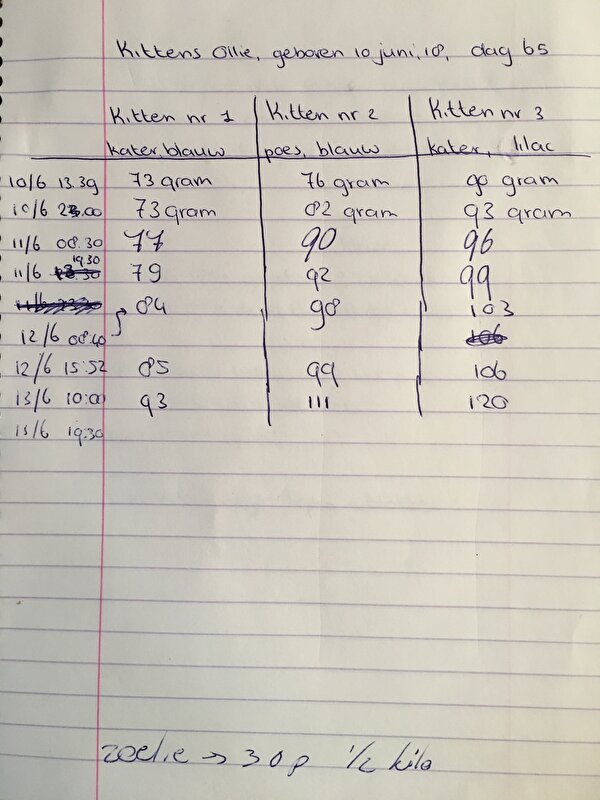 Kittens Ollie, geboren 10 juni, 18, dag 65
Kitten nr 1 Kitten nr 2 Kitten nr 3
kater, blauw poes, blauw kater, lilac
10/6 13.39 73 gram 76 gram 90 gram
10/6 23.00 73 gram 82 gram 93 gram
11/6 08.30 77 90 96
11/6 19.30 79 92 99
84 98 103
12/6 08.40
12/6 15:52 85 99 106
13/6 10:00 93 111 120
13/6 19:30
→ 30p 1/2 kilo